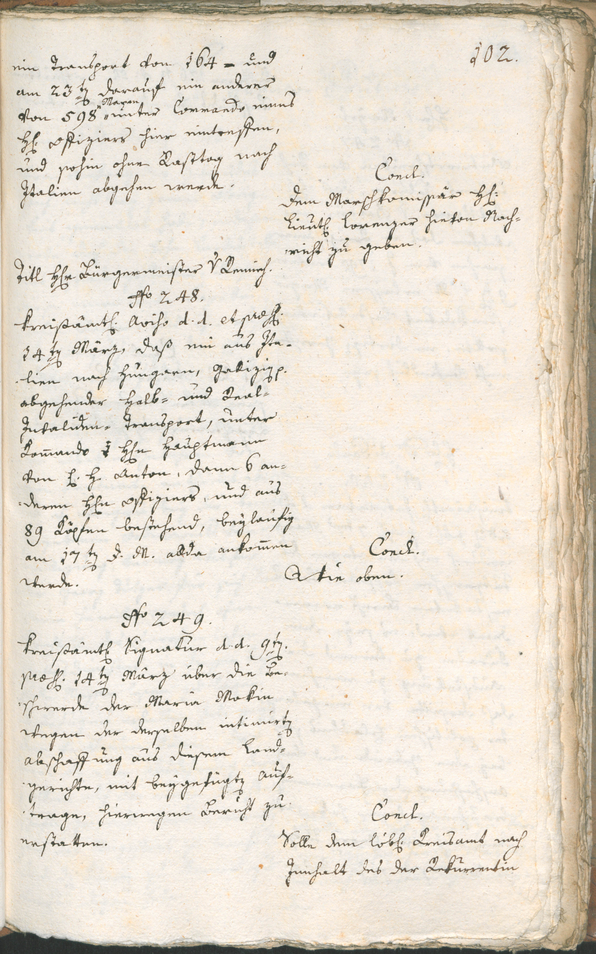 102.
ein Transport von 164 = und
am 23ten darauf ein anderer
von 598 Mann unter Commando eines
H. Offiziers hier eintreffen,
und sohin ohne Rasttag nach
Italien abgehen werde.
Concl.
Dem Marschkomissär H:
Lieut. Lorenzer hievon Nach-
richt zu geben.
Titl H. Bürgermeister v
No 248.
Kreisämtl. Aviso d. d. et praes.
14ten März, daß ein aus Ita-
lien nach Hungarn,
abgehender Halb- und Real-
Invaliden-Transport, unter
Kommando des Hauptmann
von E. H. Anton, dann 6 an-
deren Offiziers, und aus
89 Köpfen bestehend, beyläufig
am 17ten d. M. allda ankommen
werde.
Concl.
Wie oben.
No 249.
Kreisämtl. Signatur d. d. 9ten
praes. 14ten März über die Be-
schwerde der Maria Mokin
wegen der derselben intimirten
abschaffung aus diesem Land-
gerichte, mit beygefügten Auf-
trage, hierwegen Bericht zu
erstatten.
Concl.
Solle dem löbl. Kreisamt nach
Innhalt des der Rekurrentin